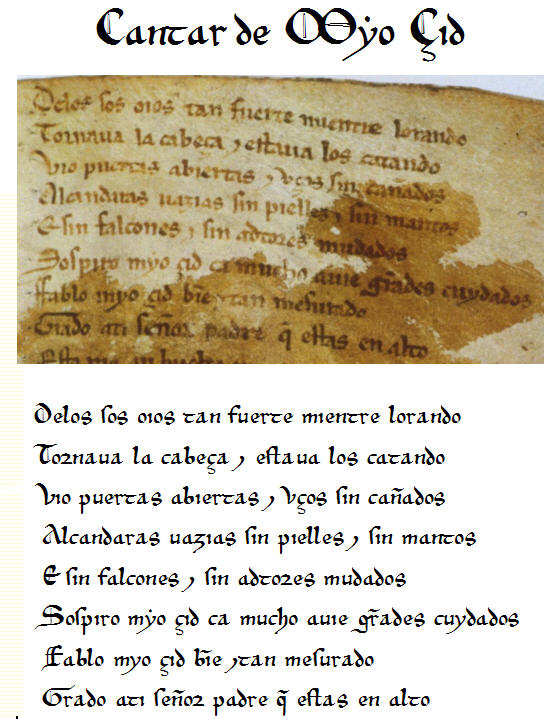 Cantar de Mẏo Çid
Delos ſos oios tan fuerte mientre lorando
Toꝛnaua la cabeça ⁊ eſtaua los catando
Vio puertas abiertas ⁊ vços ſin cañados
Alcandaras uazias ſin pielles ⁊ ſin mantos
E ſin falcones ⁊ ſin adtoꝛes mudados
Soſpiro mẏo çid ca mucho auie gr̃ades cuydados
Ffablo myo çid bĩe ⁊ tan meſurado
Grado ati ſeñoꝛ padre q̃ eſtas en alto
Delos ſos oios tan fuerte mientre lorando
Toꝛnaua la cabeça ⁊ eſtaua los catando
Vio puertas abiertas ⁊ vços ſin cañados
Alcandaras uazias ſin pielles ⁊ ſin mantos
E ſin falcones ⁊ ſin adtoꝛes mudados
Soſpiro mẏo çid ca mucho auie gr̃ades cuydados
Ffablo myo çid bĩe ⁊ tan meſurado
Grado ati ſeñoꝛ padre q̃ eſtas en alto